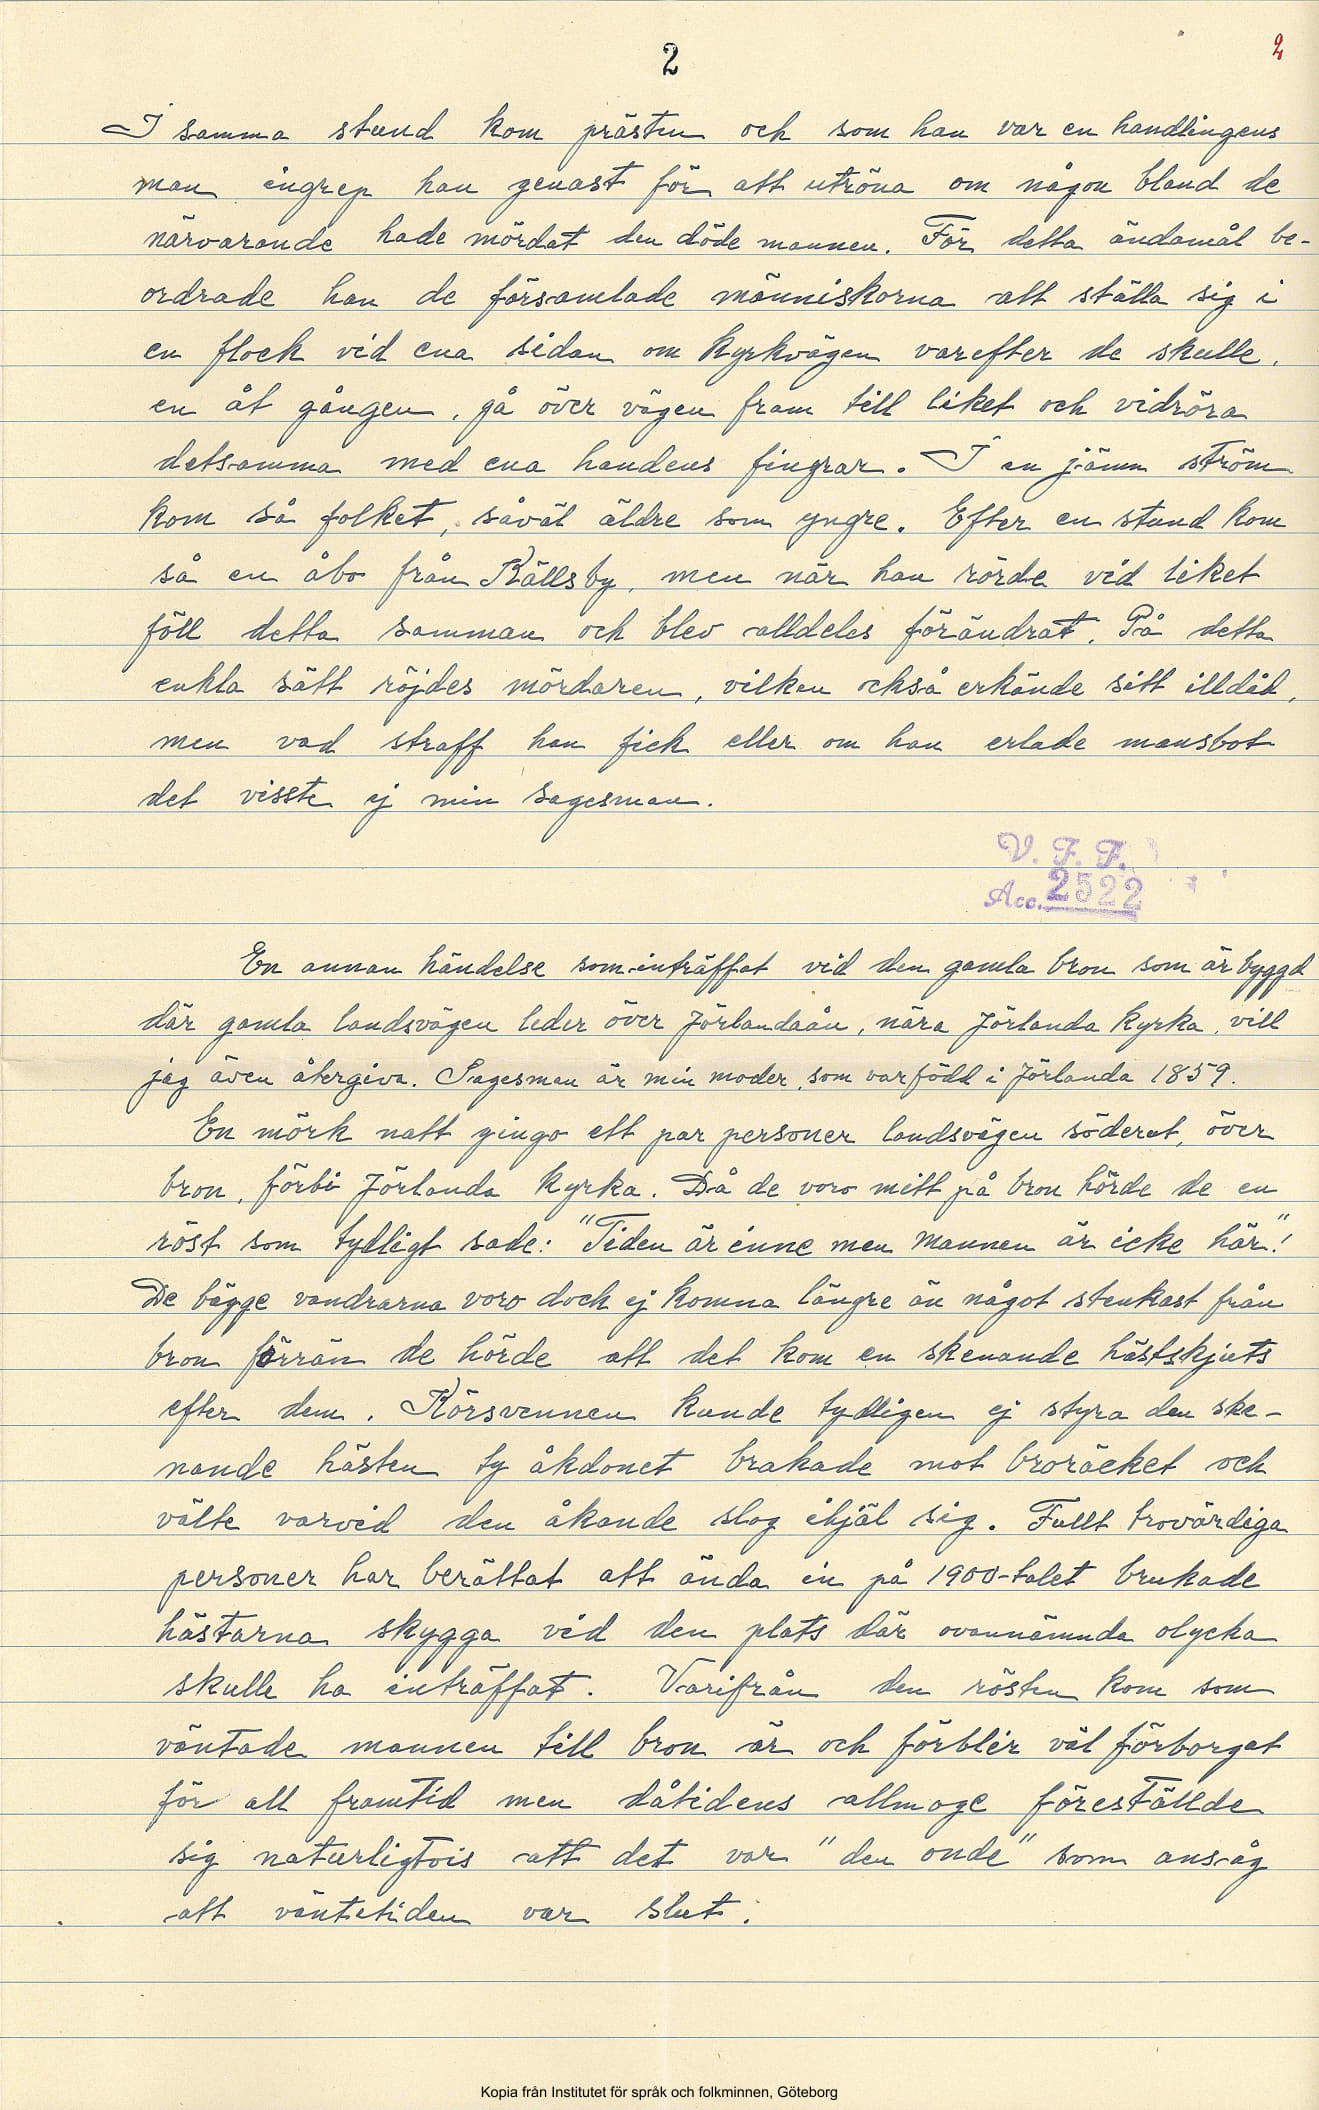 2
2
I samma stund kom prästen och som han var en handlingens
man ingrep han genast för att utröna om någon bland de
närvarande hade mördat den döde mannen. För detta ändamål be-
ordrade han de församlade människorna att ställa sig i
en flock vid ena sidan om kyrkvägen varefter de skulle,
en åt gången, gå över vägen fram till liket och vidröra
detsamma med ena handens fingrar. I en jämn ström
kom så folket, såväl äldre som yngre. Efter en stund kom
så en åbo från Källsby, men när han rörde vid liket
föll detta samman och blev alldeles förändrat. På detta
enkla sätt röjdes mördaren, vilken också erkände sitt illdåd,
men vad straff han fick eller om han erlade mansbot
det visste ej min sagesman.
V. F. F.
Acc. 2522
En annan händelse som inträffat vid den gamla bron som är byggd
där gamla landsvägen leder över Jörlandaån, nära Jörlanda kyrka, vill
jag även återgiva. Sagesman är min moder, som var född i Jörlanda 1859.
En mörk natt gingo ett par personer landsvägen söderut, över
bron, förbi Jörlanda kyrka. Då de voro mitt på bron hörde de en
röst som tydligt sade: "Tiden är inne men mannen är icke här"!
De bägge vandrarna voro dock ej komna längre än något stenkast från
bron förrän de hörde att det kom en skenande hästskjuts
efter dem. Körsvennen kunde tydligen ej styra den ske-
nande hästen ty åkdonet brakade mot broräcket och
välte varvid den åkande slog ihjäl sig. Fullt trovärdiga
personer har berättat att ända in på 1900-talet brukade
hästarna skygga vid den plats där ovannämnda olycka
skulle ha inträffat. Varifrån den rösten kom som
väntade mannen till bron är och förblir väl förborgat
för all framtid men dåtidens allmoge föreställde
sig naturligtvis att det var "den onde" som ansåg
att väntetiden var slut.
Kopia från Institutet för språk och folkminnen, Göteborg